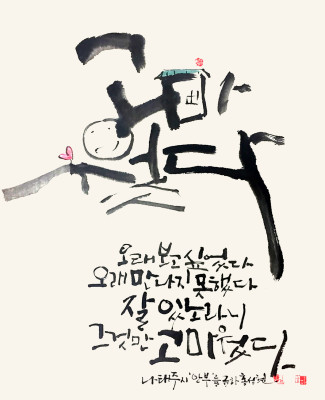 고마
웠다
오래 보고 싶었다
오래 만나지 못했다
잘 있노라니
그것만 고마웠다.
나태주 시 '안부'를